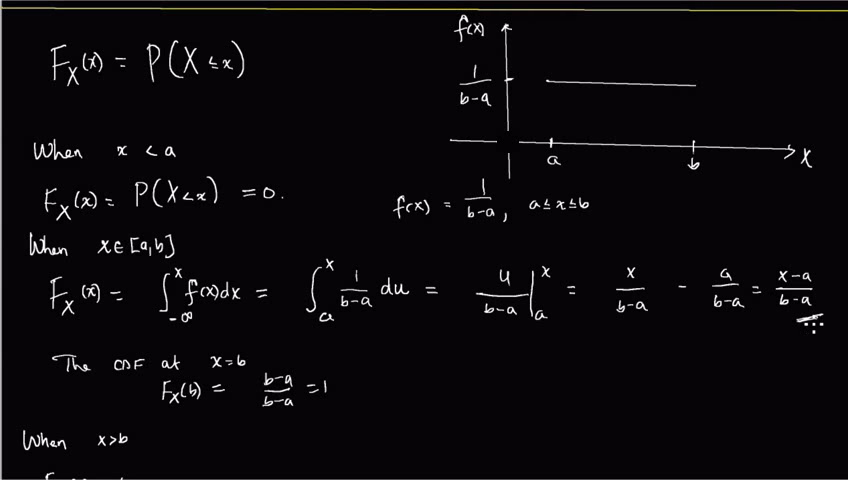 F_X(x) = P(X ≤ x)
f(x)
1/(b-a)
a b x
When x < a
F_X(x) = P(X < x) = 0.
f(x) = 1/(b-a), a ≤ x ≤ b
When x ∈ [a,b]
F_X(x) = ∫_{-∞}^{x} f(x)dx = ∫_a^x 1/(b-a) du = u/(b-a) |_a^x = x/(b-a) - a/(b-a) = (x-a)/(b-a)
The CDF at x=b
F_X(b) = (b-a)/(b-a) = 1
When x>b